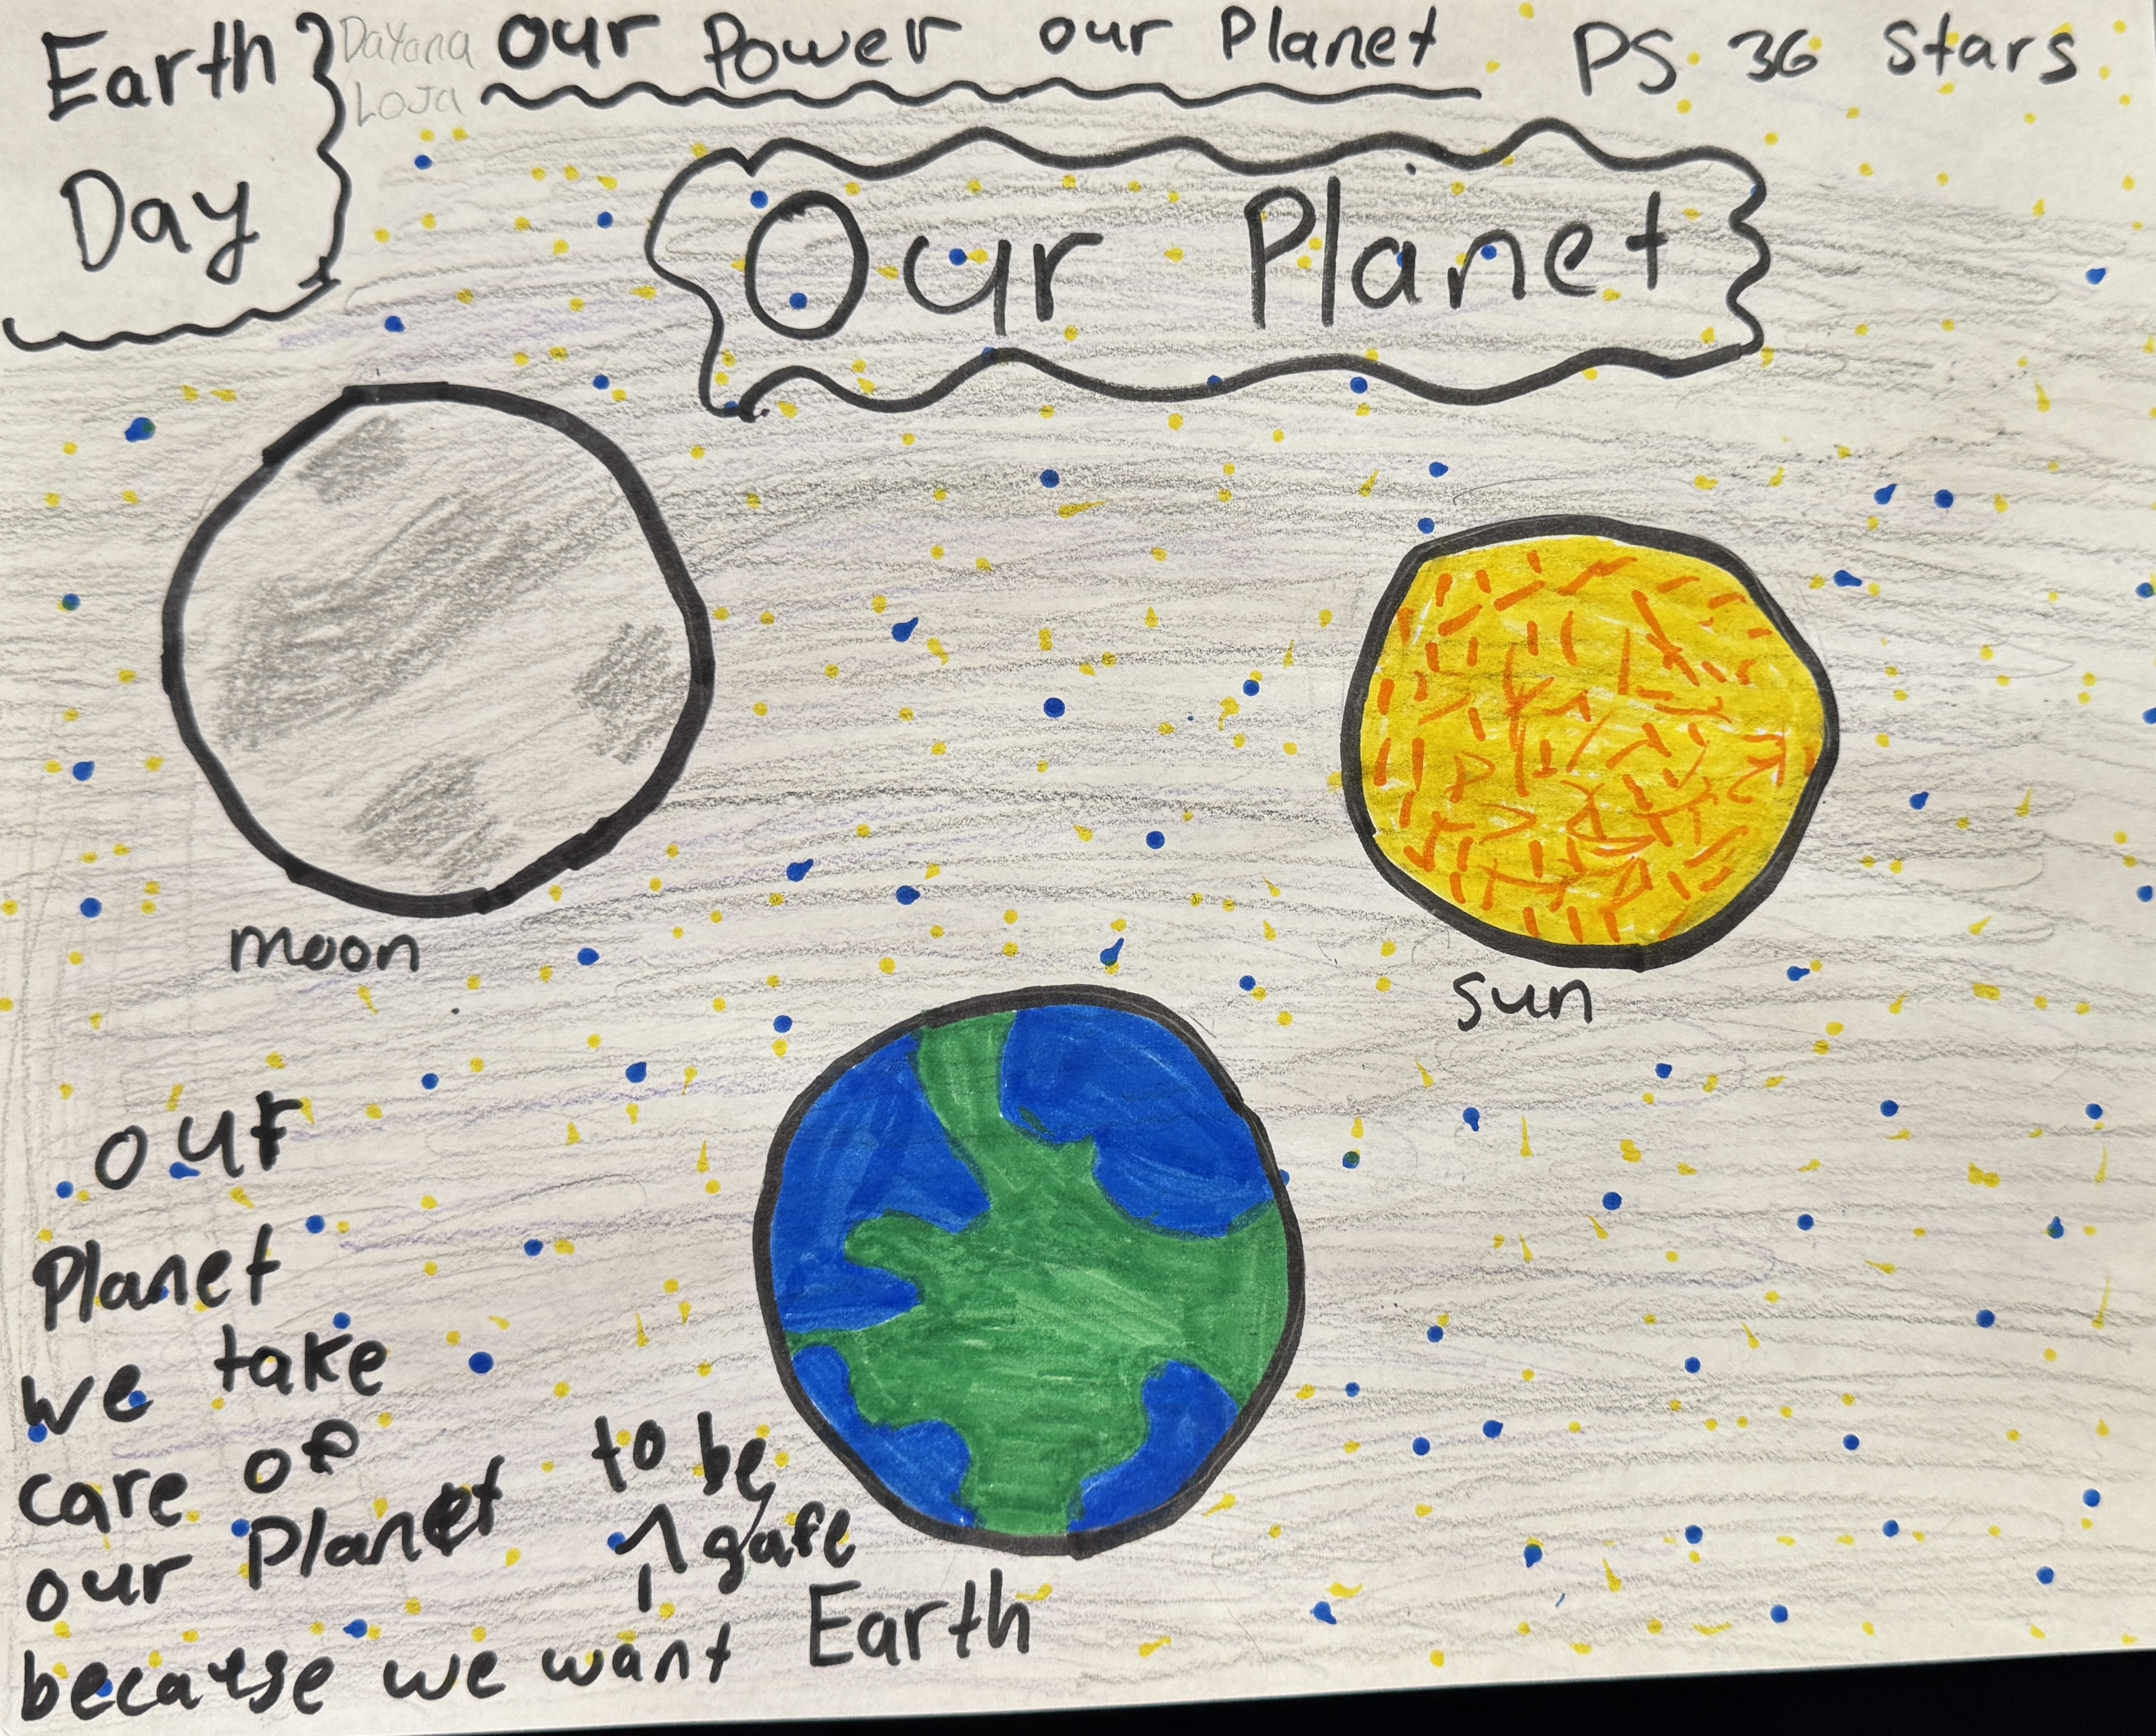 Earth
Day
Dayana
Loja
our Power our Planet
PS 36 Stars
Our Planet
moon
sun
our
Planet
we take
care of
our Planet
because we want
to be
safe
Earth